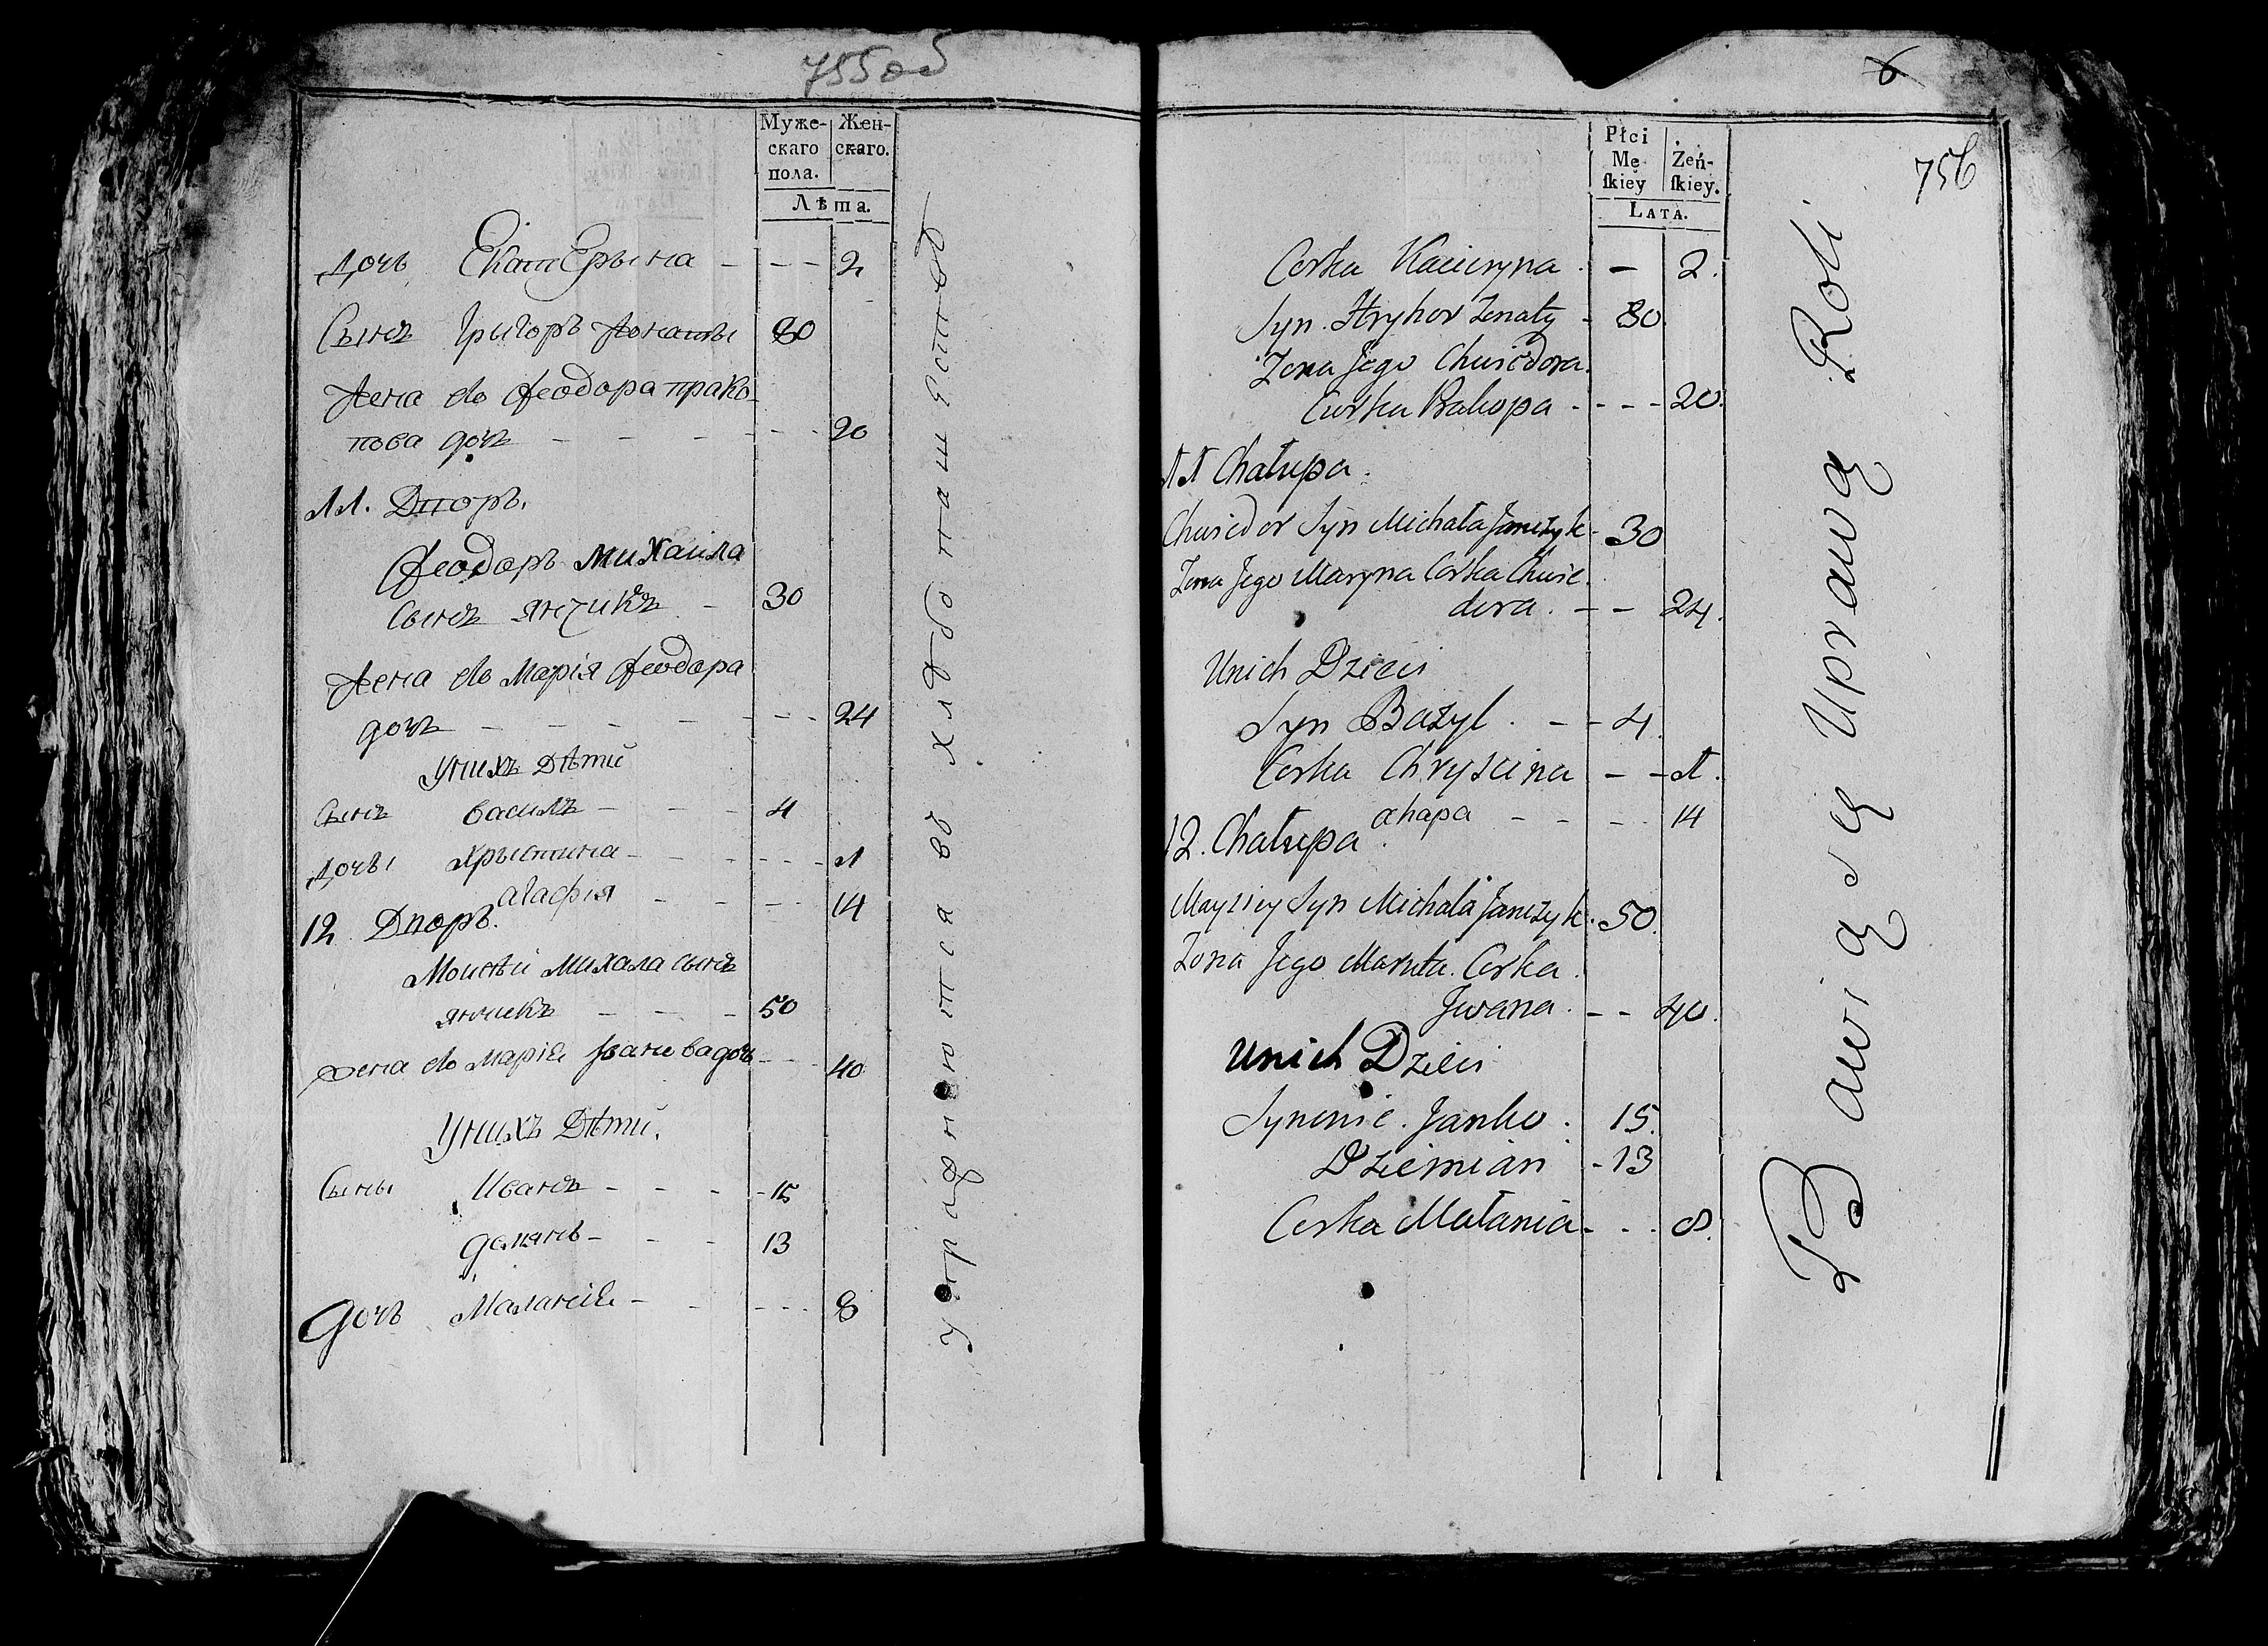 755об
Муже-
скаго
пола.
Жен-
скаго.
Лѣта.
Дочь Екатерына - - - 2
Сынъ Григоръ женаты 80
Жена его Феодора прако
пова дочъ - - - 20
11. Дпоръ.
Феодоръ Михаила
сынъ Янчикъ - 30
Жена его Марія Феодора
дочъ - - - 24
Унихъ Дѣти
Сынъ василъ - - 4
Дочъ Хрыстина - - - 1
агафія - - - 14
12 Дпоръ.
Моисѣй Михала сынъ
янчикъ - - - 50
жена его Маріе Ивановадочъ - - 40
Унихъ Дѣти.
Сыны Иванъ - - - 15
Демянъ - - - 13
Дочъ Маланіе - - - 8
6
756
Płci
Mę-
ſkiey
Żeń-
ſkiey.
LATA.
Corka Kacieryna. - 2.
Syn. Hryhor Zenaty - 80.
Zona Jego Chwiedora.
Curka Prakopa - - - - 20.
11 Chałupa.
Chwiedor Syn Michała Janczyk - 30
Zona Jego Maryna Corka Chwie.
dora. - - 24.
Unich Dzieci
Syn Bazyl. - - 4.
Corka Chryscina - - 1.
ahapa - - - - 14
12. Chałupa.
Mayziey Syn Michała Janczyk. 50.
Zona Jego Maruta. Corka.
Jwana. - - 40.
Unich Dzieci
Synowie. Janko. 15.
Dziemian - 13
Corka Małania - - - 8.
Bawią się Uprawą Roli